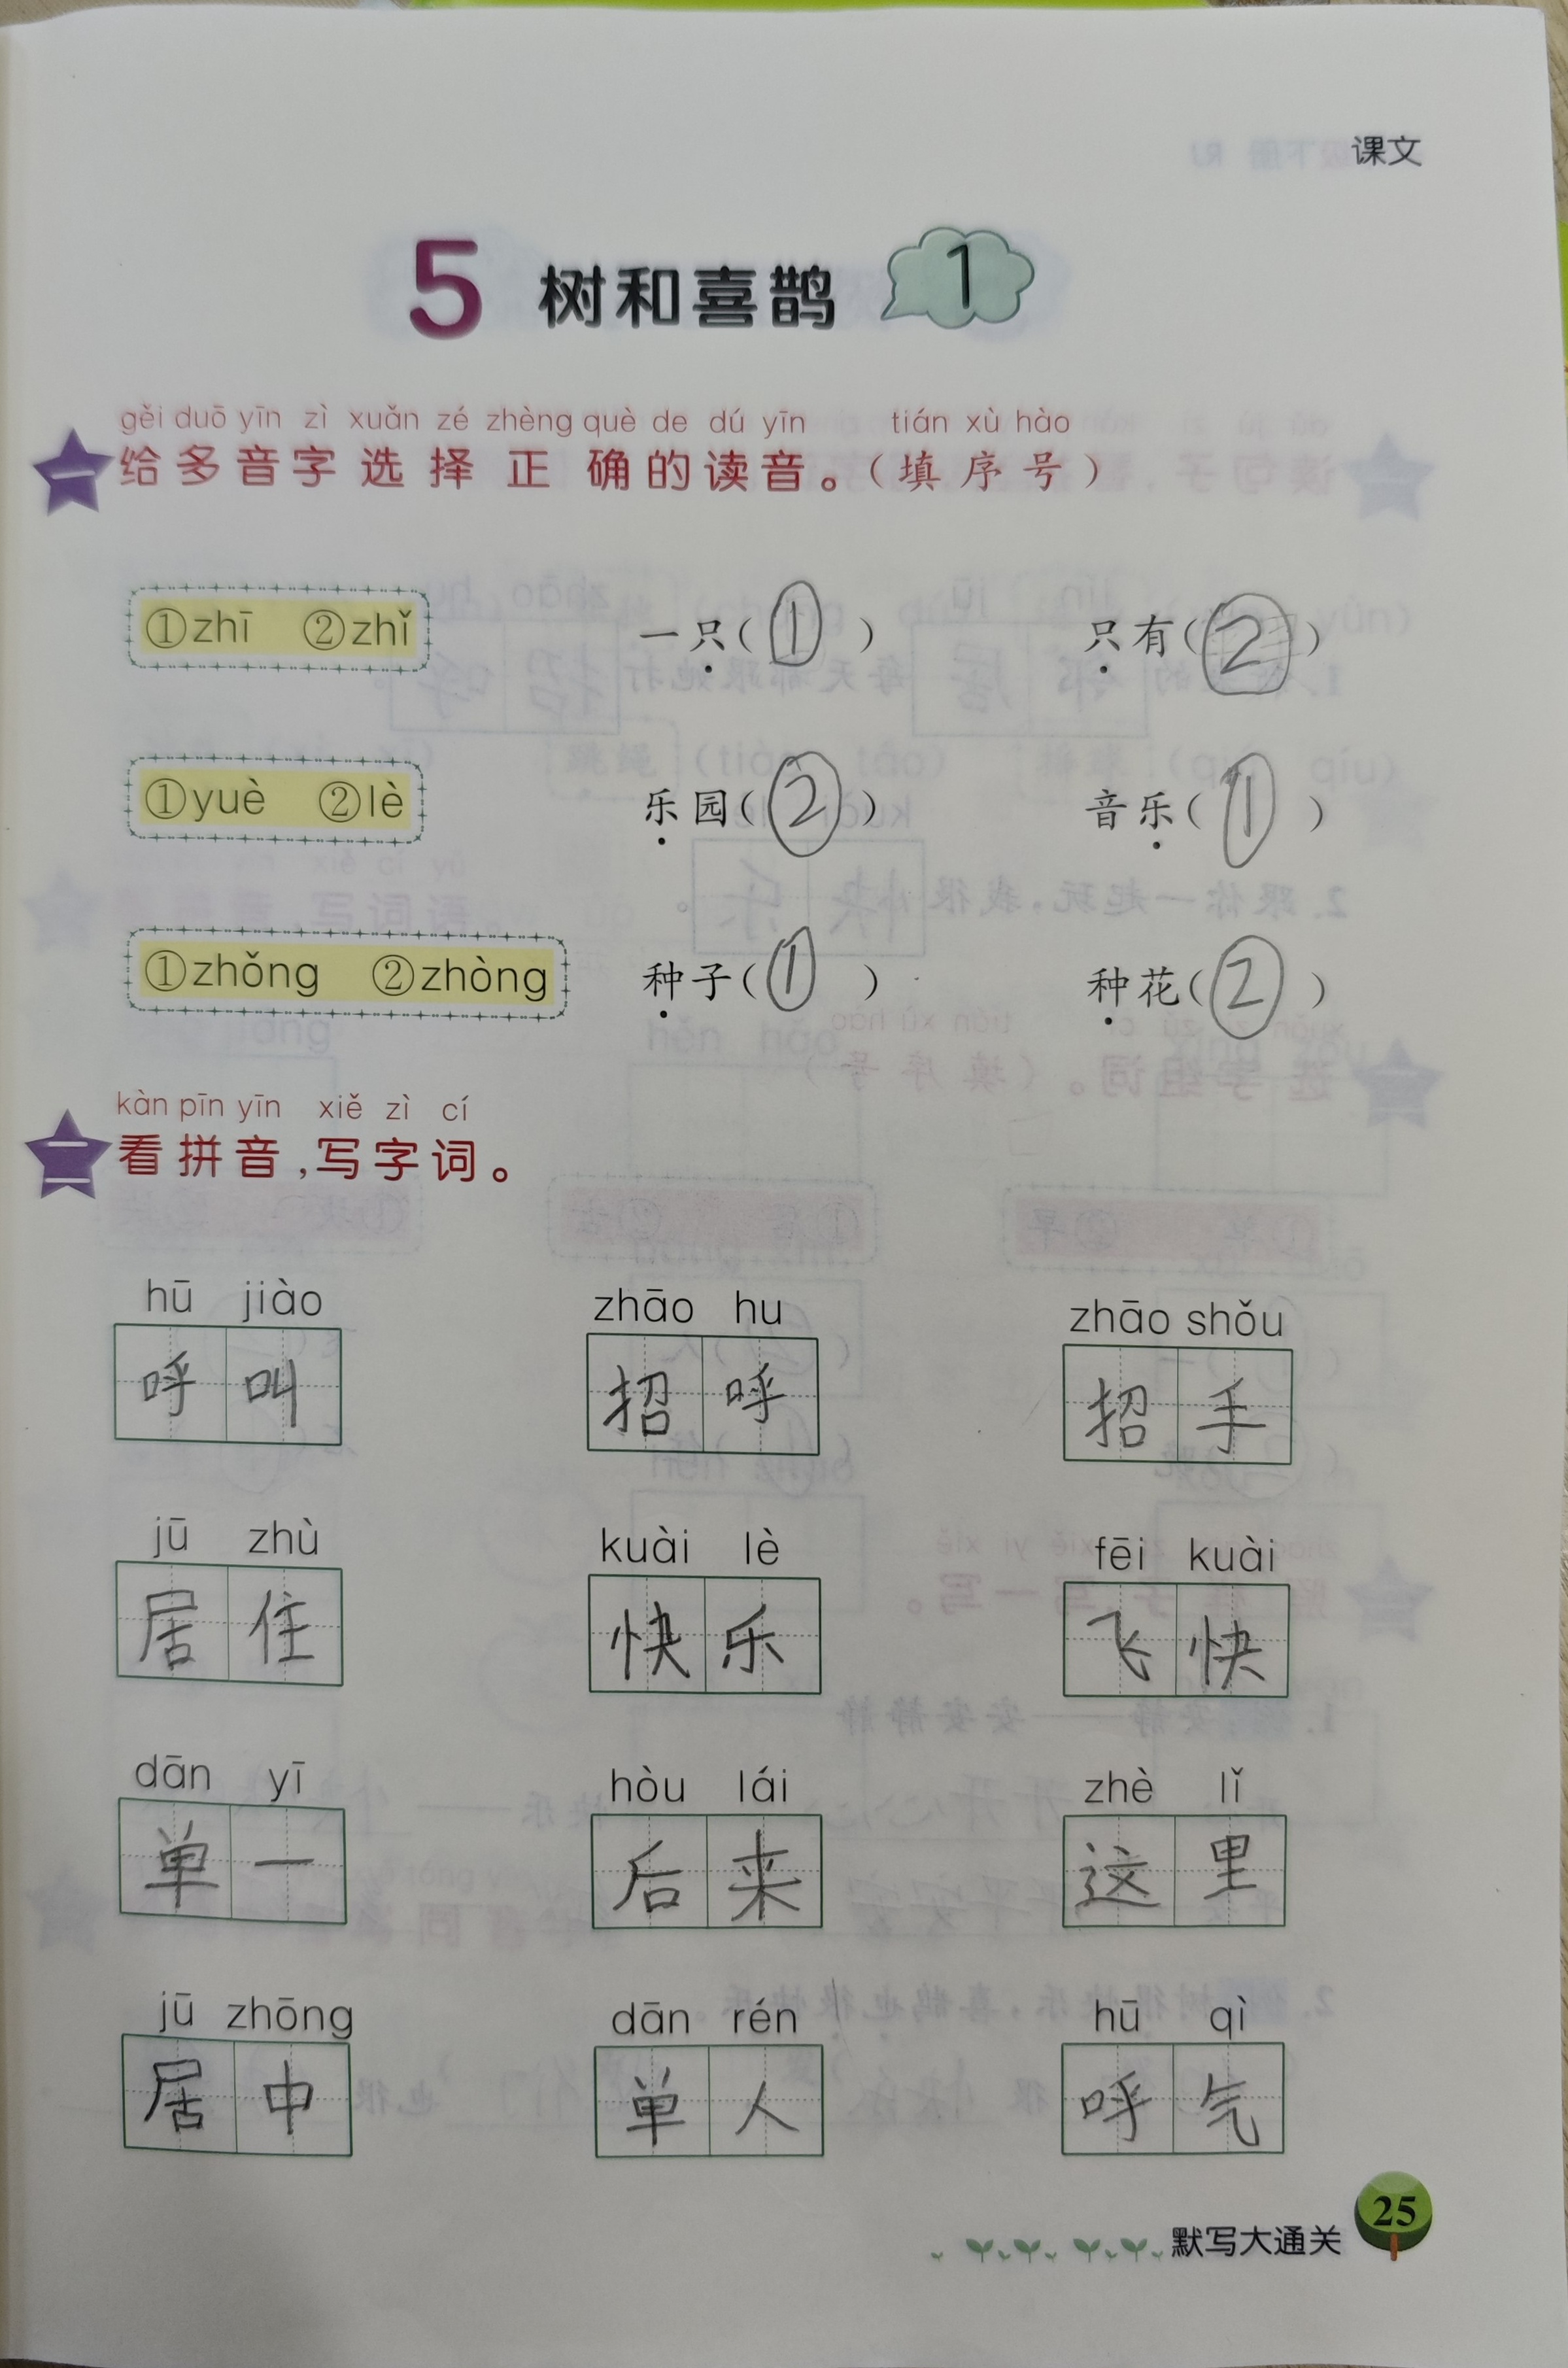 课文
5 树和喜鹊 1
gěi duō yīn zì xuǎn zé zhèng què de dú yīn tián xù hào
一 给多音字选择正确的读音。（填序号）
①zhī ②zhǐ 一只（① ） 只有（② ）
①yuè ②lè 乐园（② ） 音乐（① ）
①zhǒng ②zhòng 种子（① ） 种花（② ）
kàn pīn yīn xiě zì cí
二 看拼音，写字词。
hū jiào zhāo hu zhāo shǒu
呼叫 招呼 招手
jū zhù kuài lè fēi kuài
居住 快乐 飞快
dān yī hòu lái zhè lǐ
单一 后来 这里
jū zhōng dān rén hū qì
居中 单人 呼气
默写大通关 25